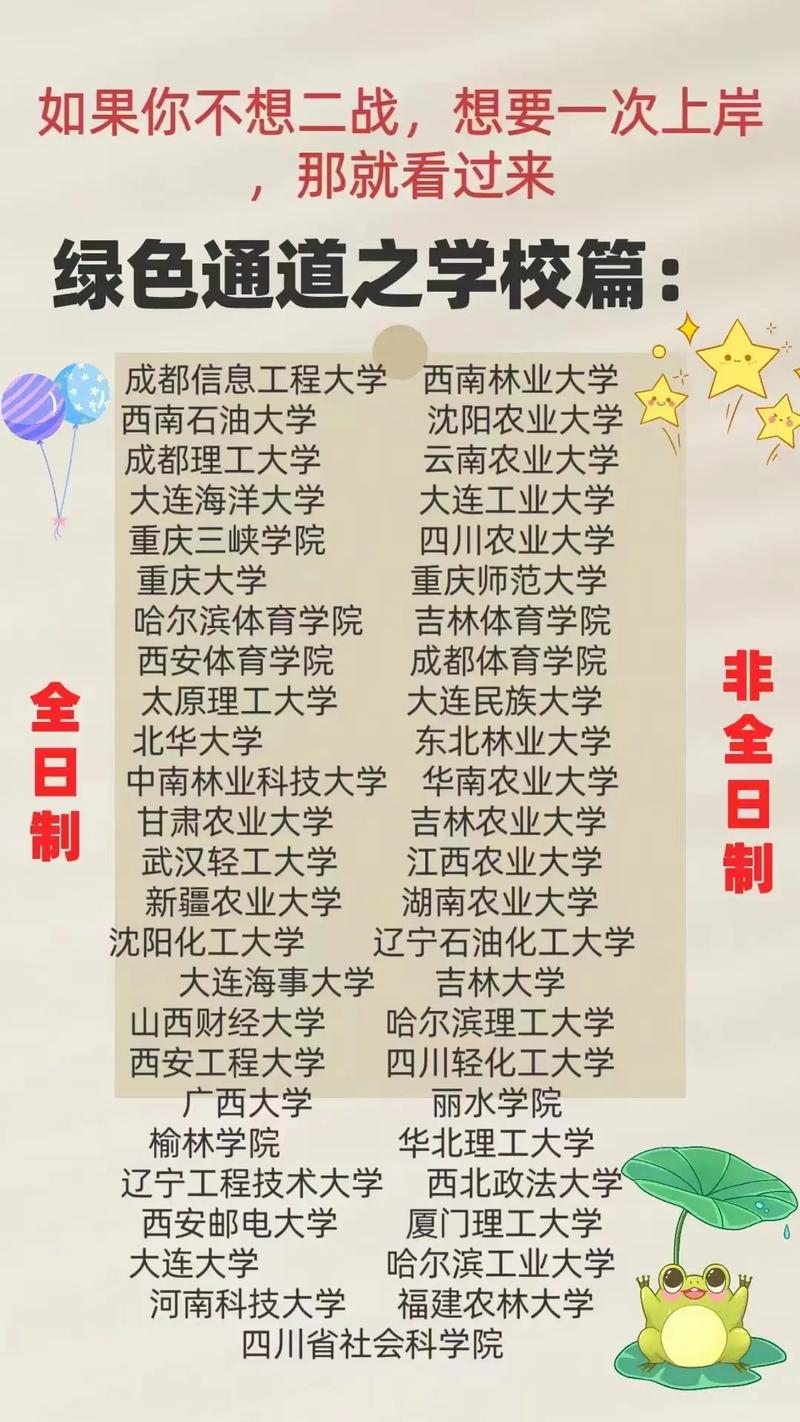 如果你不想二战，想要一次上岸
，那就看过来
绿色通道之学校篇：
成都信息工程大学 西南林业大学
西南石油大学 沈阳农业大学
成都理工大学 云南农业大学
大连海洋大学 大连工业大学
重庆三峡学院 四川农业大学
重庆大学 重庆师范大学
哈尔滨体育学院 吉林体育学院
西安体育学院 成都体育学院
太原理工大学 大连民族大学
北华大学 东北林业大学
中南林业科技大学 华南农业大学
甘肃农业大学 吉林农业大学
武汉轻工大学 江西农业大学
新疆农业大学 湖南农业大学
沈阳化工大学 辽宁石油化工大学
大连海事大学 吉林大学
山西财经大学 哈尔滨理工大学
西安工程大学 四川轻化工大学
广西大学 丽水学院
榆林学院 华北理工大学
辽宁工程技术大学 西北政法大学
西安邮电大学 厦门理工大学
大连大学 哈尔滨工业大学
河南科技大学 福建农林大学
四川省社会科学院
全日制
非全日制